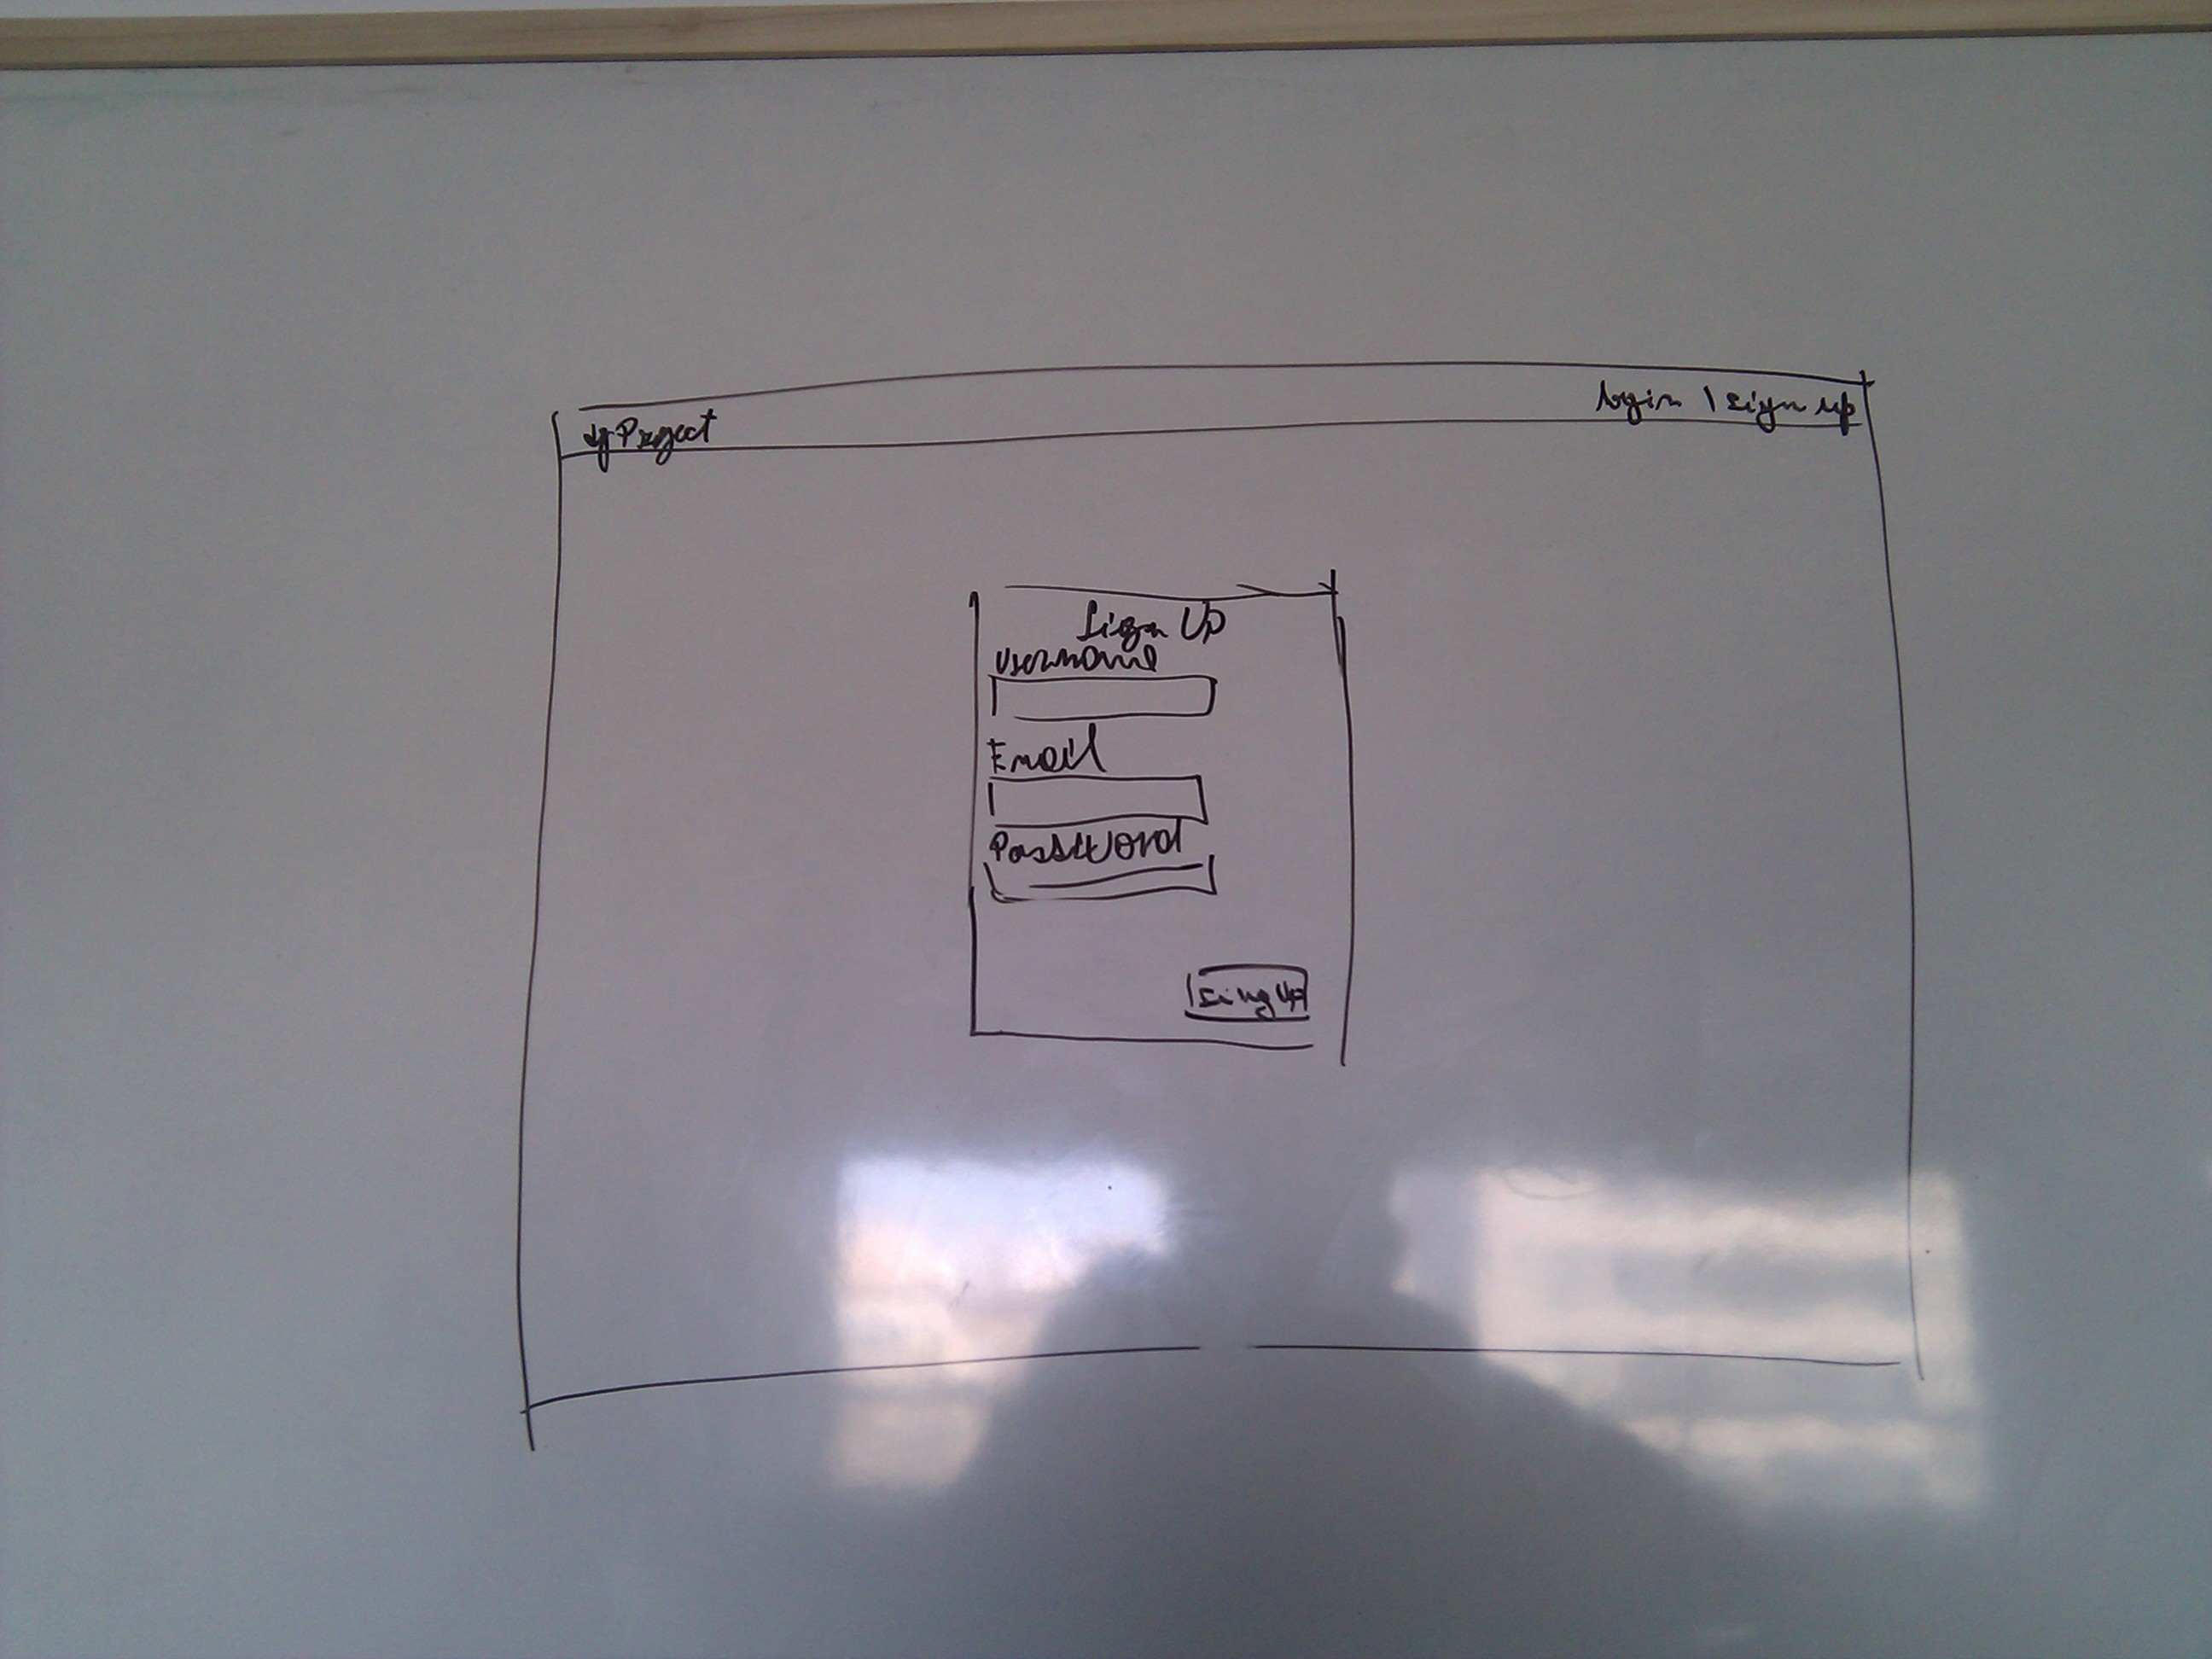 Project
login | sign up
Sign Up
Username
Email
Password
Sing Up